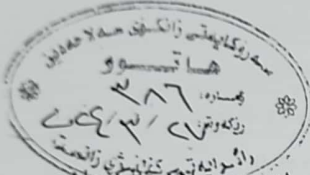 سەرۆکایەتی زانکۆی سەلاحەدین
هاتوو
ژمارە: ٣٨٦
ڕێکەوتی ٢٠٢٤/٣/٢٧